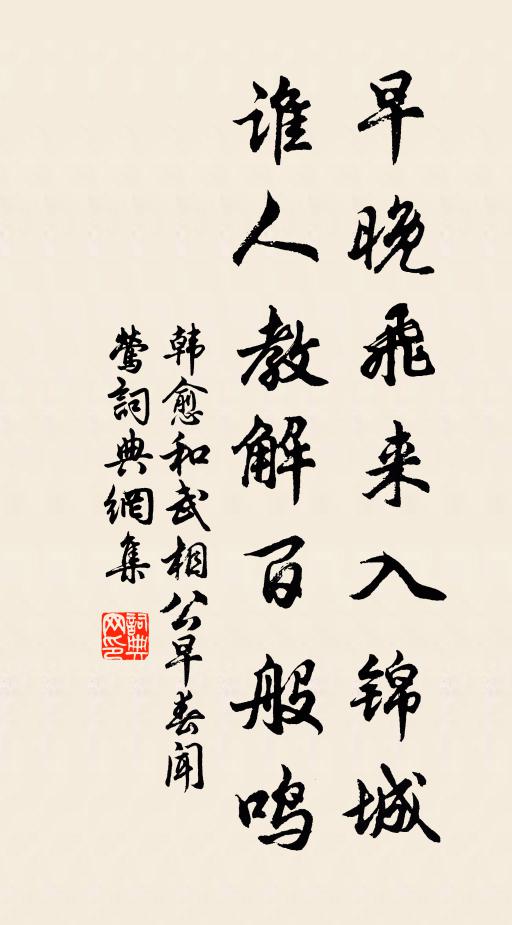 早晚飞来入锦城
谁人教解百般鸣
韩愈和武相公早春闻
莺詞典網集
詞典
网印